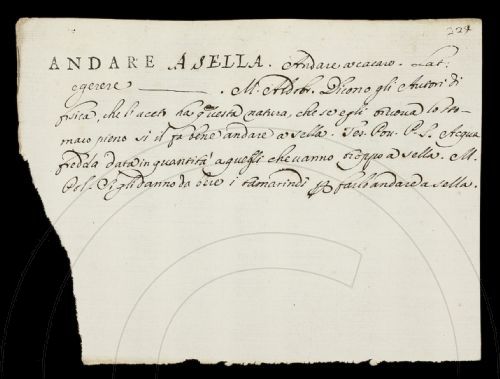 224
ANDARE A SELLA. Andare a cacare. Lat:
egerere ———. M. Aldob. Dicono gli Autori di
fisica, che l'aceto ha questa natura, che se egli truova lo sto-
maco pieno si il fa bene andare a sella. Tes. Pov. P. S. Acqua
fredda data in quantità a quegli che vanno troppo a sella. M.
Se gli danno da bere i tamarindi per farlo andare a sella.